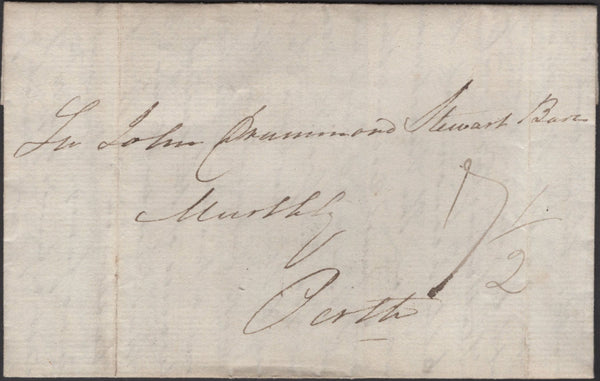 Sir John Drummond Stewart Bart
Murthly
7 1/2
Perth